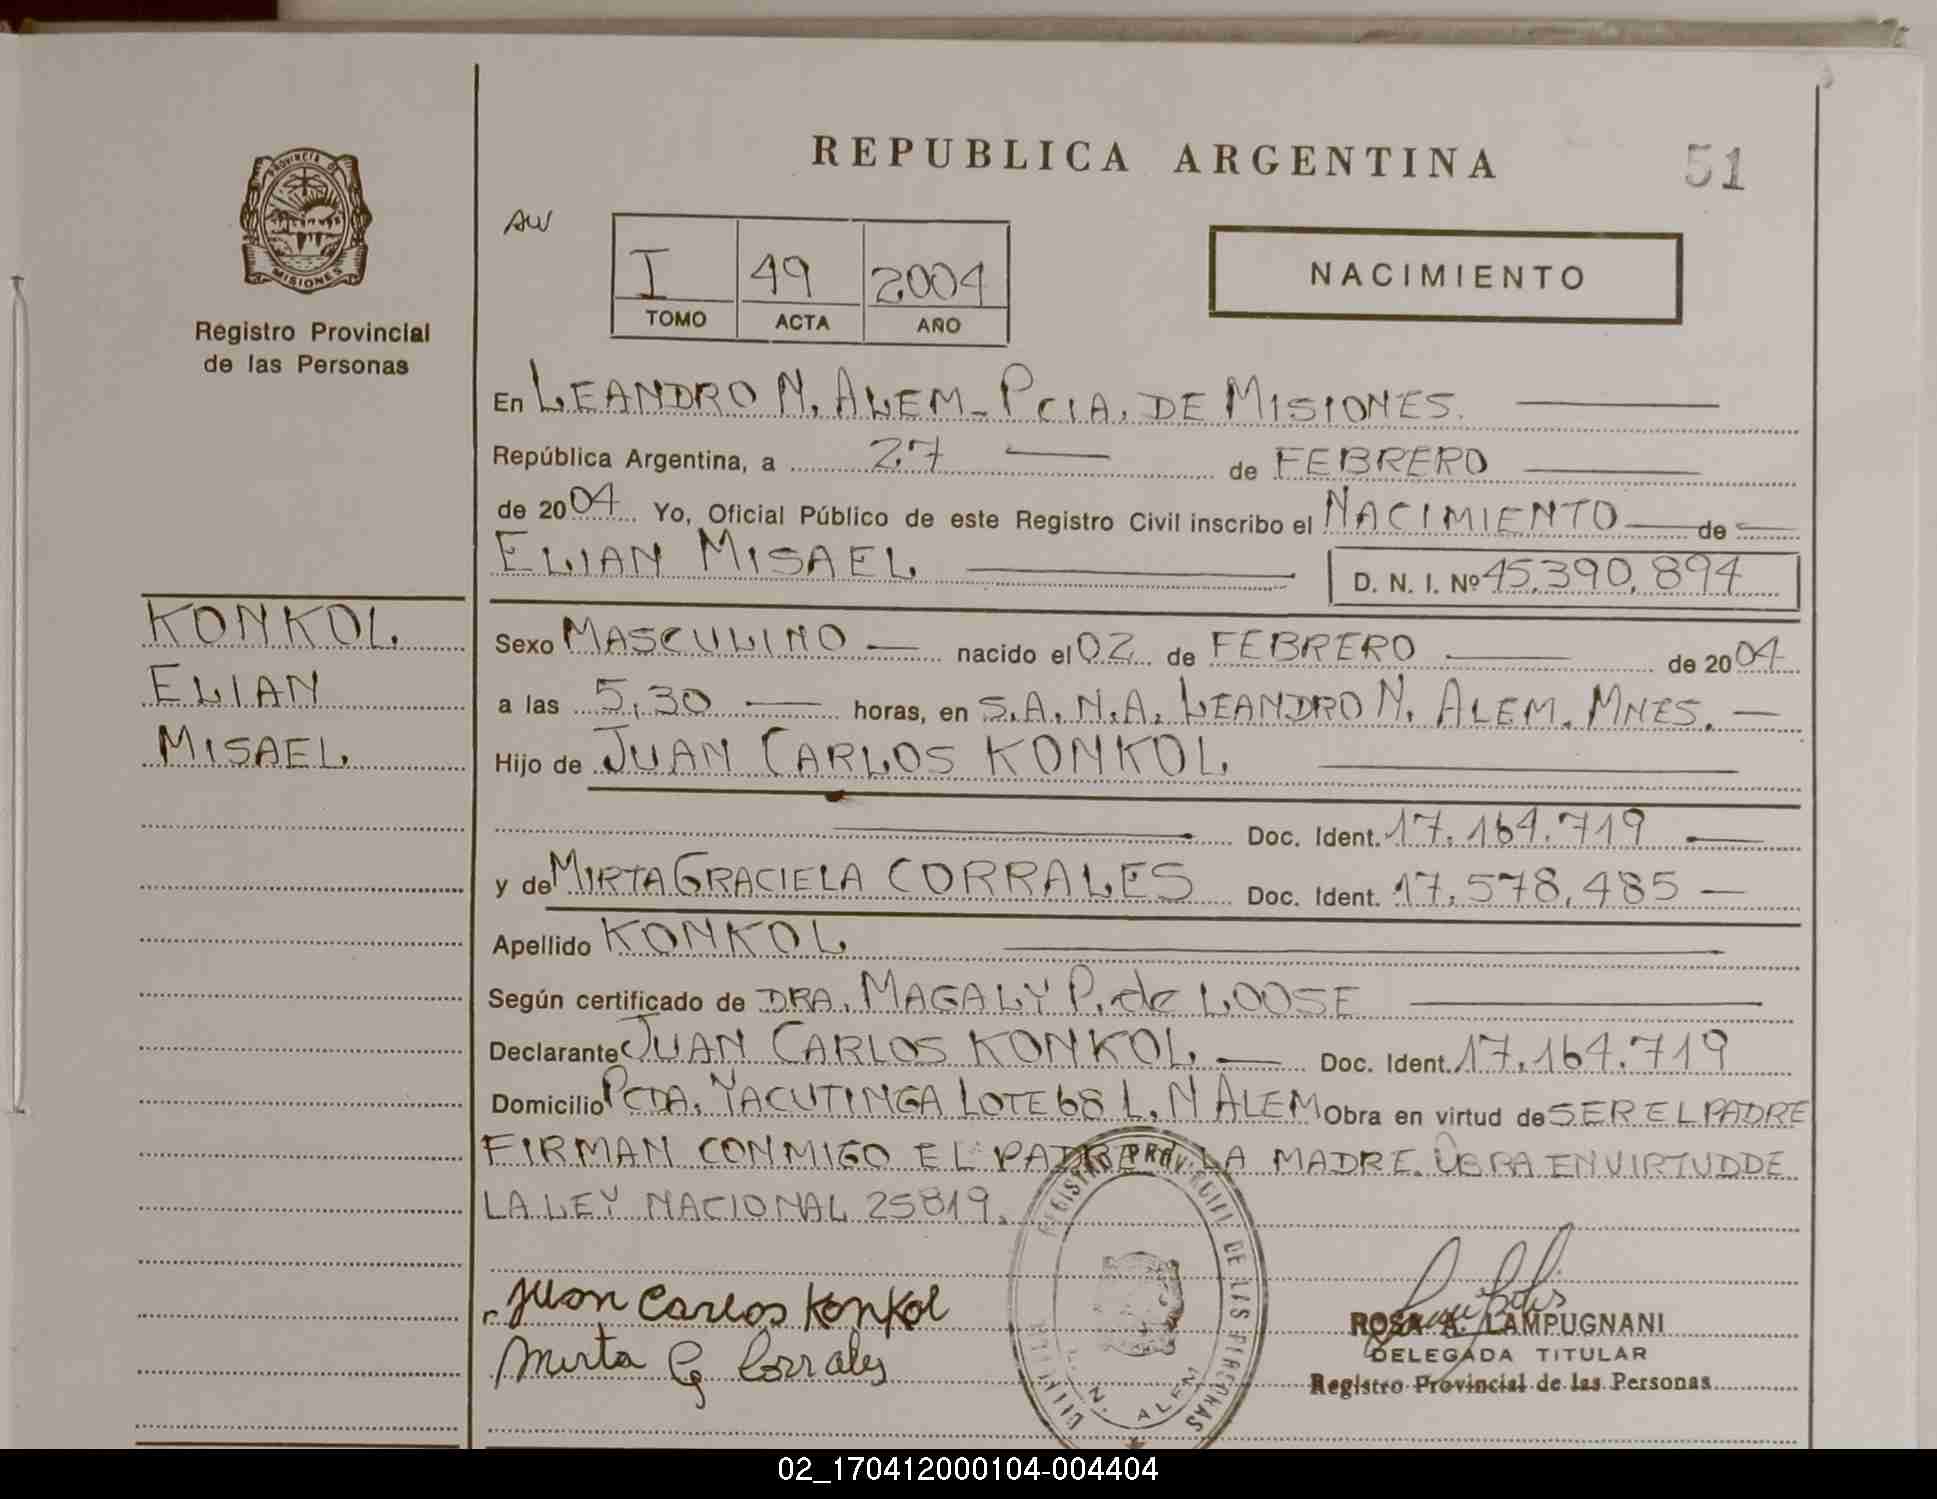 REPUBLICA ARGENTINA
51
PROVINCIA DE
MISIONES
Registro Provincial
de las Personas
AW
I 49 2004
TOMO ACTA AÑO
NACIMIENTO
En LEANDRO N. ALEM - PCIA. DE MISIONES.
República Argentina, a 27 de FEBRERO
de 2004 Yo, Oficial Público de este Registro Civil inscribo el NACIMIENTO de
ELIAN MISAEL D. N. I. Nº 45.390.894
KONKOL
ELIAN
MISAEL
Sexo MASCULINO nacido el 02 de FEBRERO de 2004
a las 5,30 horas, en S.A.N.A. LEANDRO N. ALEM. MNES.
Hijo de JUAN CARLOS KONKOL
Doc. Ident. 17.164.719
y de MIRTA GRACIELA CORRALES Doc. Ident. 17.578.485
Apellido KONKOL
Según certificado de DRA. MAGALY P. de LOOSE
Declarante JUAN CARLOS KONKOL Doc. Ident. 17.164.719
Domicilio PCTA. YACUTINGA LOTE 68 L. N ALEM Obra en virtud de SER EL PADRE
FIRMAN CONMIGO EL PADRE LA MADRE. OBRA EN VIRTUD DE
LA LEY NACIONAL 25819.
REGISTRO PROVINCIAL DE LAS PERSONAS
N. ALEM
Juan Carlos Konkol
Mirta G Corrales
ROSA A. LAMPUGNANI
DELEGADA TITULAR
Registro Provincial de las Personas
02_170412000104-004404